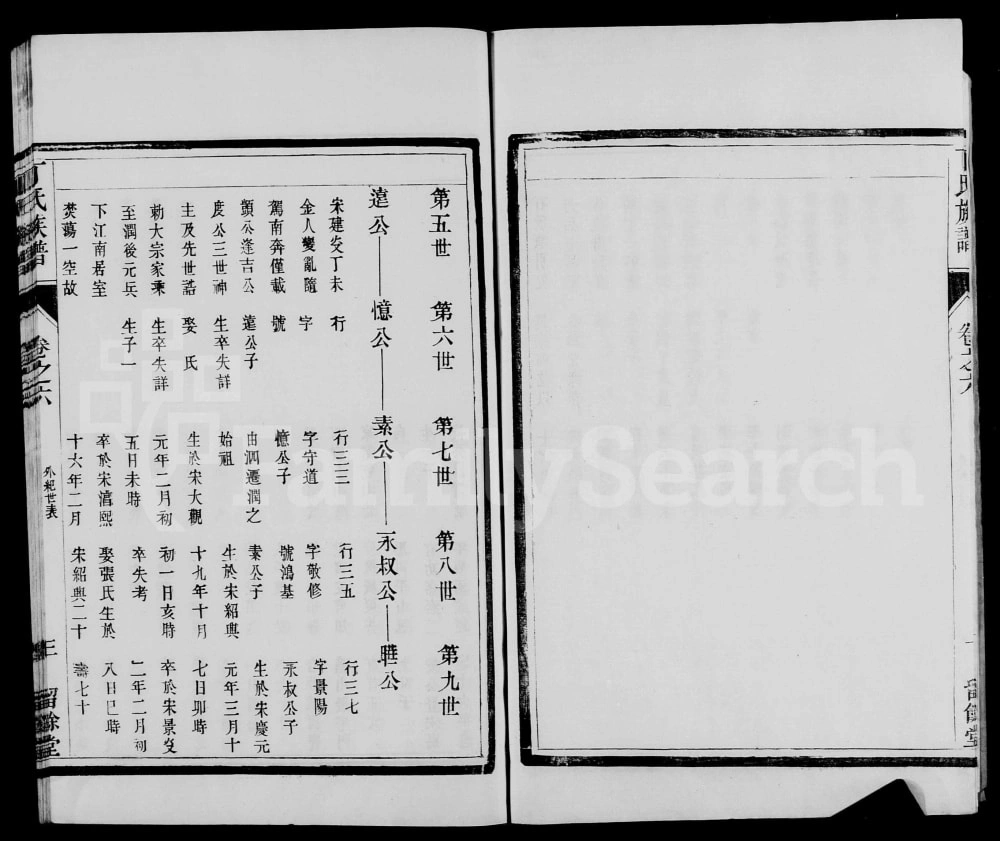 第五世
第六世
第七世
第八世
第九世
薳公
憶公
素公
永叔公
韡公
宋建炎丁未
金人變亂隨
駕南奔僅載
顗公逢吉公
度公三世神
主及先世誥
勅大宗家乘
至潤後元兵
下江南居室
焚蕩一空故
行
字
號
薳公子
生卒失詳
娶 氏
生卒失詳
生子一
行三三
字守道
憶公子
由泗遷潤之
始祖
生於宋大觀
元年二月初
五日未時
卒於宋淳熙
十六年二月
行三五
字敬修
號鴻基
素公子
生於宋紹興
十九年十月
初一日亥時
卒失考
娶張氏生於
宋紹興二十
行三七
字景陽
永叔公子
生於宋慶元
元年三月十
七日卯時
卒於宋景炎
二年二月初
八日巳時
壽七十
丁氏族譜
卷之六
外紀世表
三
留餘堂
丁氏族譜
卷之六
留餘堂
FamilySearch